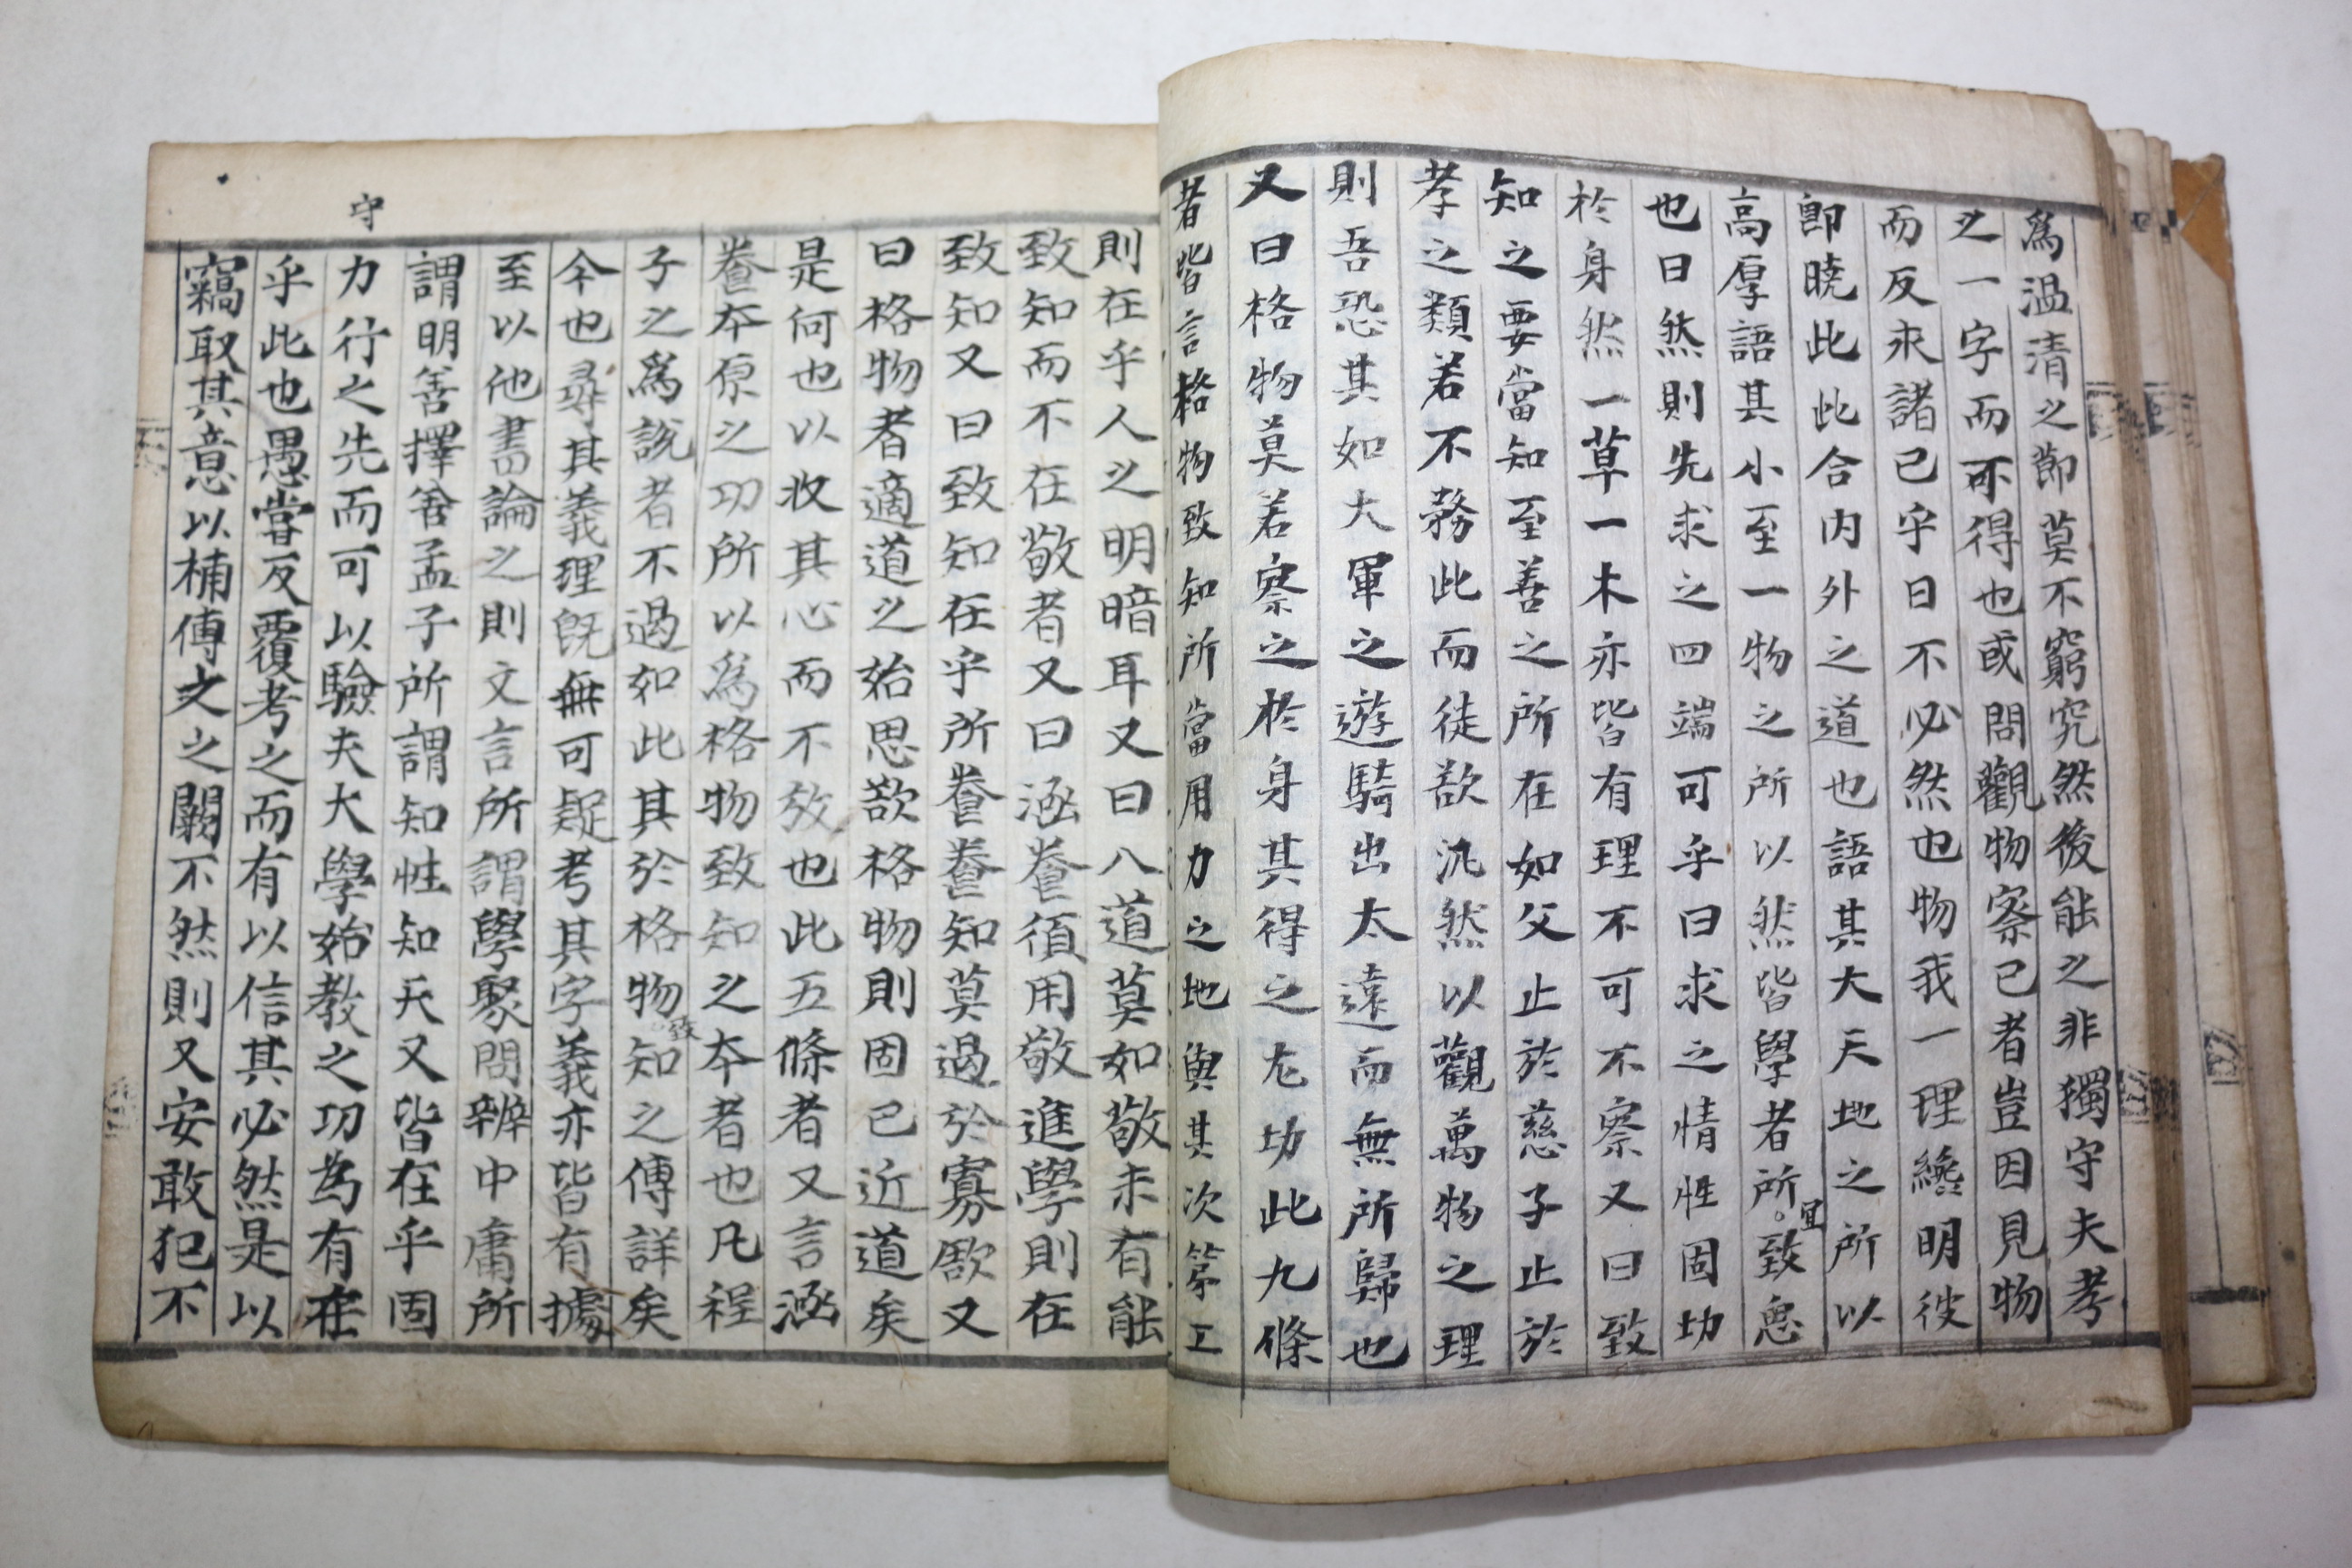 為温清之節莫不窮究然後能之非獨守夫孝
之一字而可得也或問觀物察己者豈因見物
而反求諸己乎曰不必然也物我一理纔明彼
即曉此此合內外之道也語其大天地之所以
高厚語其小至一物之所以然皆學者所宜致思
也曰然則先求之四端可乎曰求之情性固切
於身然一草一木亦皆有理不可不察又曰致
知之要當知至善之所在如父止於慈子止於
孝之類若不務此而徒欲汎然以觀萬物之理
則吾恐其如大軍之遊騎出太遠而無所歸也
又曰格物莫若察之於身其得之尤切此九條
者皆言格物致知所當用力之地與其次第工
則在乎人之明暗耳又曰入道莫如敬未有能
致知而不在敬者又曰涵養須用敬進學則在
致知又曰致知在乎所養養知莫過於寡欲又
曰格物者適道之始思欲格物則固已近道矣
是何也以收其心而不放也此五條者又言涵
養本原之功所以為格物致知之本者也凡程
子之為說者不過如此其於格物致知之傳詳矣
今也尋其義理既無可疑考其字義亦皆有據
至以他書論之則文言所謂學聚問辨中庸所
謂明善擇善孟子所謂知性知天又皆在乎固
守
力行之先而可以驗夫大學始教之功為有在
乎此也愚嘗反覆考之而有以信其必然是以
竊取其意以補傳文之闕不然則又安敢犯不